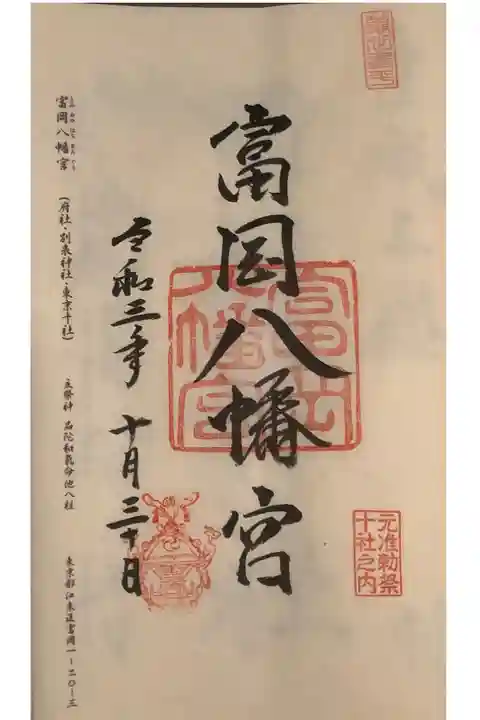 元准勅祭
十社之内
富岡八幡宮
富岡
八幡宮
令和三年 十月三十日
富岡八幡宮 (府社・別表神社・東京十社) 主祭神 品陀和氣命他八柱 東京都江東区富岡一ー二〇ー三
とみ おか はち まん ぐう